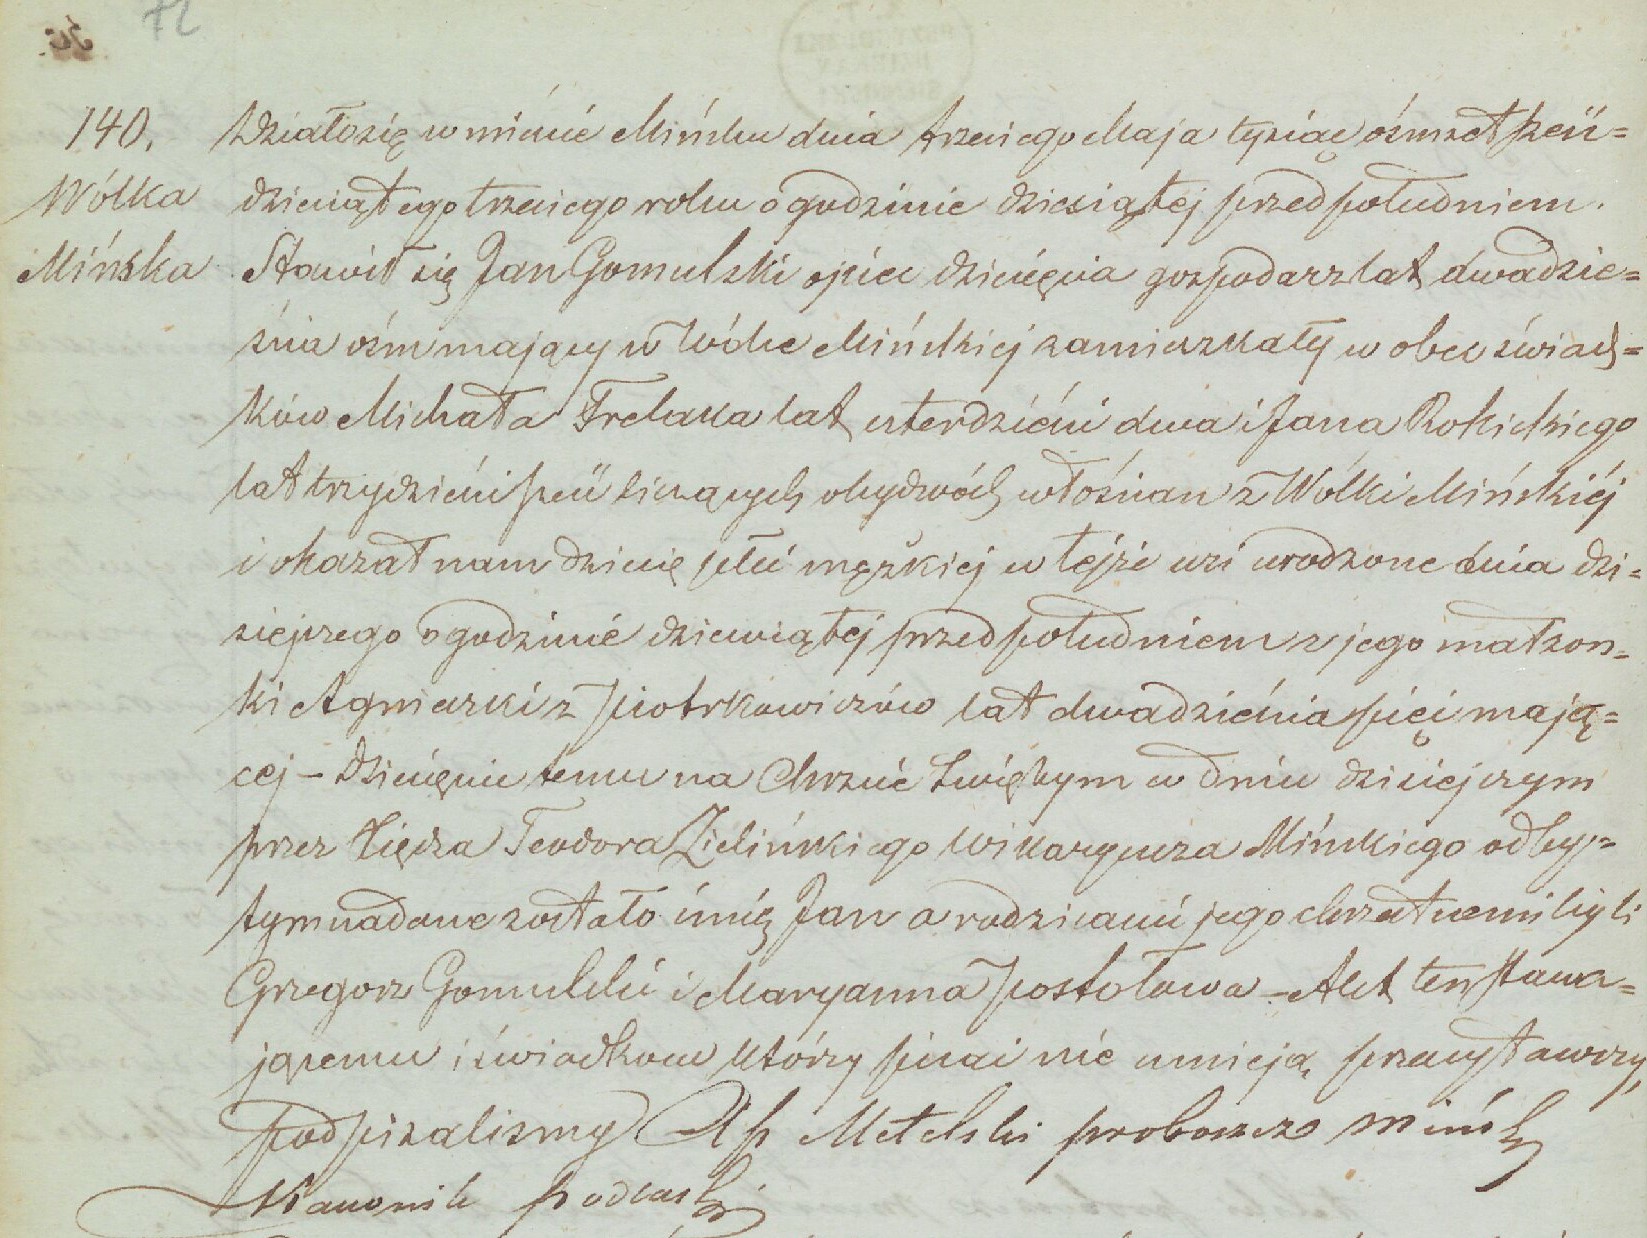 72
140.
Wólka
Mińska
Działo się w mieście Mińsku dnia trzeciego Maja tysiąc ośmset sześć=
dziesiątego trzeciego roku o godzinie dziesiątej przed południem.
Stawił się Jan Gomulski ojciec dziecięcia gospodarz lat dwadzie=
ścia ośm mający w Wólce Mińskiej zamieszkały w obec świad=
ków Michała Trelaka lat czterdzieści dwa i Jana Rokickiego
lat trzydzieści sześć liczących obydwóch włościan z Wólki Mińskiéj
i okazał nam dziecię płci męzkiej w tejże wsi urodzone dnia dzi-
siejszego o godzinie dziewiątej przed południem z jego małżon-
ki Agnieszki z Piotrkowiczów lat dwadzieścia pięć mają=
cej – Dziecięciu temu na Chrzcie Świętym w dniu dzisiejszym
przez Xiędza Teodora Zielińskiego Wikaryusza Mińskiego odby=
tym nadane zostało imię Jan a rodzicami jego chrzestnemi byli
Grzegorz Gomulski i Maryanna Postołowa – Akt ten stawa=
jącemu i świadkom którzy pisać nie umieją przeczytawszy,
podpisaliśmy Metelski proboszcz Mińsk
Kanonik podlaski